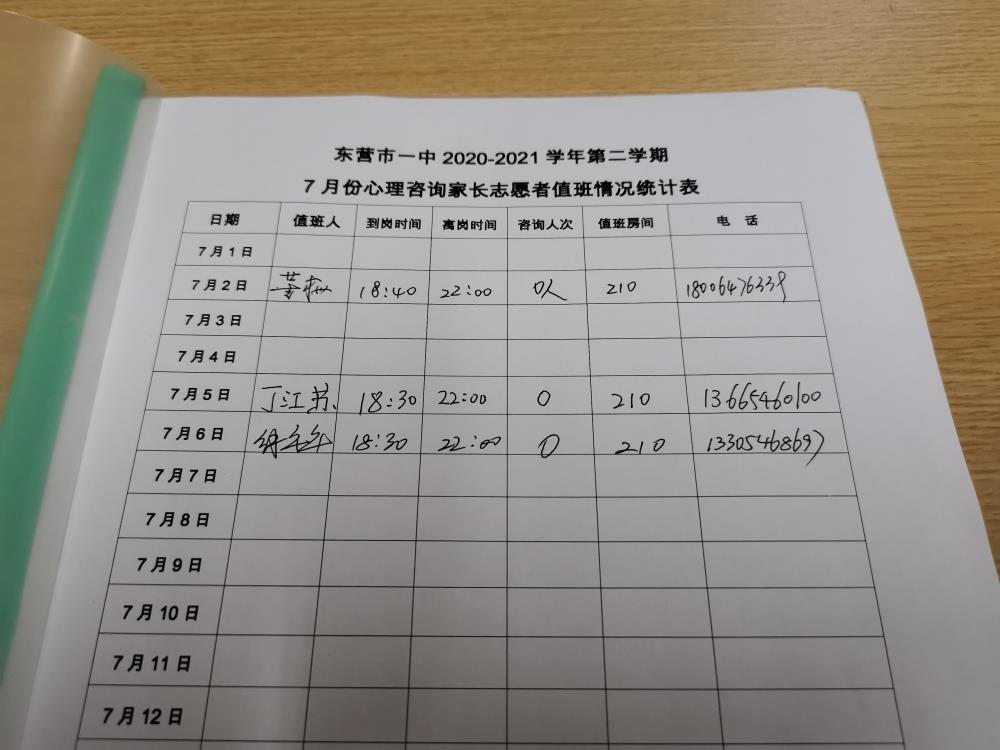 东营市一中2020-2021学年第二学期
7月份心理咨询家长志愿者值班情况统计表
日期 值班人 到岗时间 离岗时间 咨询人次 值班房间 电 话
7月1日
7月2日 18:40 22:00 0人 210 18006476339
7月3日
7月4日
7月5日 丁江苏 18:30 22:00 0 210 13665460100
7月6日 18:30 22:00 0 210 13305468697
7月7日
7月8日
7月9日
7月10日
7月11日
7月12日